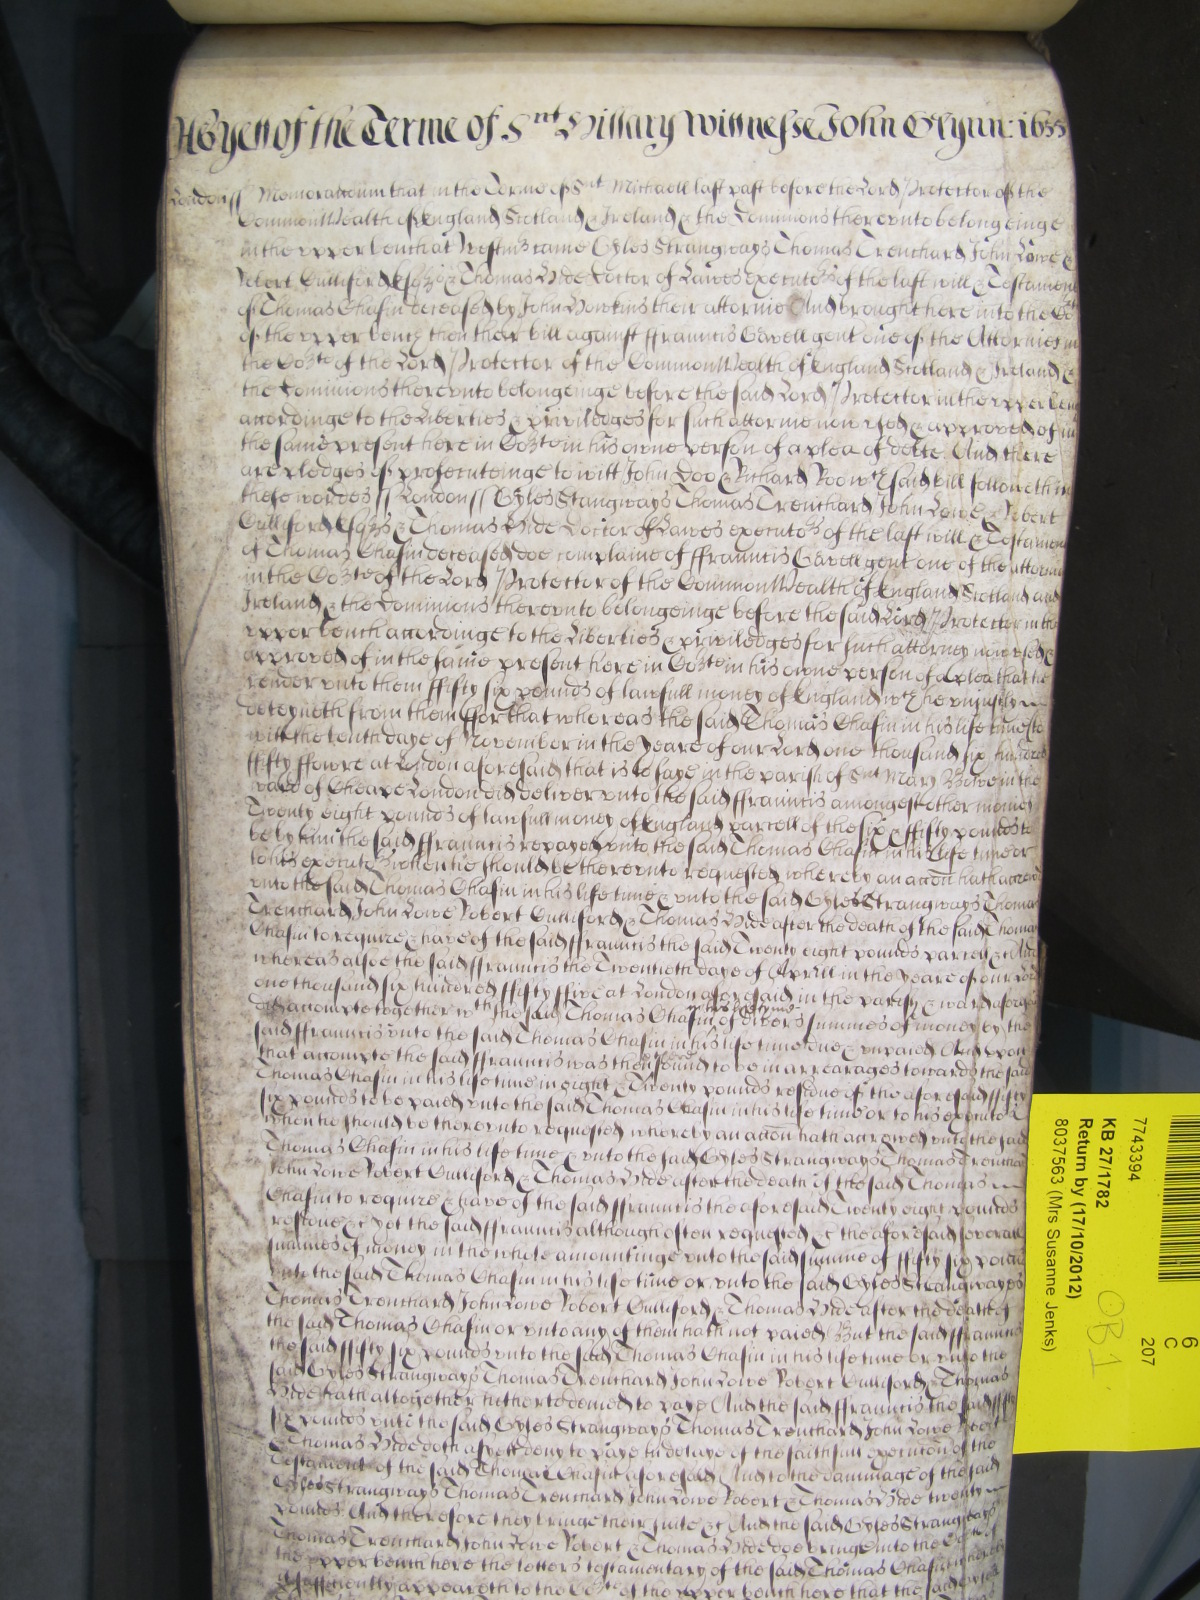 As yett of the Terme of Snt Hillary Wittnesse John Glynn: 1655
London ss Memorandum that in the Terme of Snt Michaell last past before the Lord Protector of the
CommonWealth of England Scotland & Ireland & the Dominions thereunto belongeinge
in the upper bench at Westmr came Gyles Strangways Thomas Trenchard John Lowe &
Robert Culliford Esqrs & Thomas Hide Doctor of Lawes executors of the last will & Testament
of Thomas Chafin deceased by John Howkins their attornie And brought here into the Cort
of the upper bench then their bill against ffrauncis Cavell gent one of the Attornies in
the Corte of the Lord Protector of the CommonWealth of England Scotland & Ireland &
the Dominions thereunto belongeinge before the said Lord Protector in the upper bench
accordinge to the Liberties & priviledges for such attornie now used & approved of in
the same present here in Corte in his owne person of a plea of debte And there
are pledges of prosecuteinge to witt John Doo & Richard Roo wch said bill followeth in
these wordes ss London ss Gyles Stangways Thomas Trenchard John Lowe & Robert
Culliford Esqrs & Thomas Hide Doctor of Lawes executors of the last will & Testament
of Thomas Chafin deceased doe complaine of ffrauncis Cavell gent one of the attornies
in the Corte of the Lord Protector of the CommonWealth of England Scotland and
Ireland & the Dominions thereunto belongeinge before the said Lord Protector in the
upper bench accordinge to the Liberties & priviledges for such attorney now used &
approved of in the same present here in Corte in his owne person of a plea that he
render unto them ffifty six pounds of lawfull money of England wch he unjustly
deteyneth from them ffor that whereas the said Thomas Chafin in his life time to
witt the tenth daye of November in the yeare of our Lord one thousand six hundred
ffifty ffowre at London aforesaid that is to saye in the parish of Snt Mary Bowe in the
ward of Cheape London did deliver unto the said ffrauncis amongest other moneys
Twenty eight pounds of lawfull money of England parcell of the six & ffifty pounds to
be by him the said ffrauncis repayed unto the said Thomas Chafin in his life time or
to his executors when he should be thereunto requested whereby an accon hath accrewed
unto the said Thomas Chafin in his life time & unto the said Gyles Strangways Thomas
Trenchard John Lowe Robert Culliford & Thomas Hide after the death of the said Thomas
Chafin to require & have of the said ffrauncis the said Twenty eight pounds parcell &c And
whereas alsoe the said ffrauncis the Twentieth daye of Aprill in the yeare of our Lord
one thousand six hundred ffifty ffive at London aforesaid in the parish & ward aforesaid
did accompte together wth the said Thomas Chafin in his life tyme of divers summes of money by the
said ffrauncis unto the said Thomas Chafin in his life time due & unpaied And upon
that accompte the said ffrauncis was then found to be in arrearages towards the said
Thomas Chafin in his life time in eight & Twenty pounds residue of the aforesaid ffifty
six pounds to be paied unto the said Thomas Chafin in his life time or to his executors
when he should be thereunto requested whereby an accon hath accrewed unto the said
Thomas Chafin in his life time & unto the said Gyles Strangways Thomas Trenchard
John Lowe Robert Culliford & Thomas Hide after the death of the said Thomas
Chafin to require & have of the said ffrauncis the aforesaid Twenty eight pounds
residue &c Yet the said ffrauncis although often requested &c the aforesaid severall
summes of money in the whole amountinge unto the said summe of ffifty six pounds
unto the said Thomas Chafin in his life time or unto the said Gyles Strangwayes
Thomas Trenchard John Lowe Robert Culliford & Thomas Hide after the death of
the said Thomas Chafin or unto any of them hath not paied But the said ffrauncis
the said ffifty six pounds unto the said Thomas Chafin in his life time or unto the
said Gyles Strangways Thomas Trenchard John Lowe Robert Culliford & Thomas
Hide hath altogether hitherto denied to paye And the said ffrauncis the said ffifty
six pounds unto the said Gyles Strangways Thomas Trenchard John Lowe Robert
& Thomas Hide doth as yett deny to paye in delaye of the faithfull execucon of the
Testament of the said Thomas Chafin aforesaid And to the dammage of the said
Gyles Strangways Thomas Trenchard John Lowe Robert & Thomas Hide twenty
pounds And therefore they bringe their suite &c And the said Gyles Strangways
Thomas Trenchard John Lowe Robert & Thomas Hide doe bringe into the Corte of
the upper bench here the letters testamentary of the said Thomas Chafin whereby
itt sufficiently appeareth to the Corte of the upper bench here that the said Gyles
7743394
KB 27/1782
Return by (17/10/2012)
8037563 (Mrs Susanne Jenks)
OB 1
6
C
207